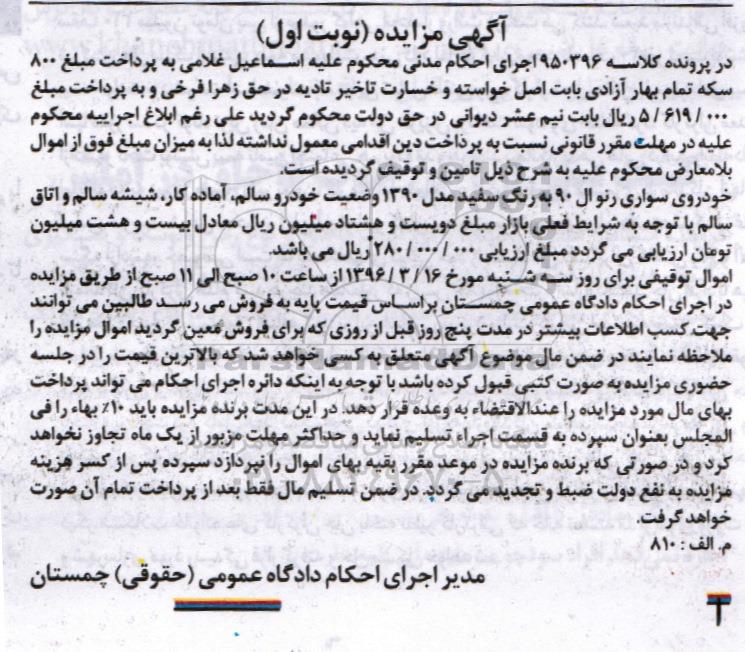 آگهی مزایده (نوبت اول)
در پرونده کلاسه ۹۵۰۳۹۶ اجرای احکام مدنی محکوم علیه اسماعیل غلامی به پرداخت مبلغ ۸۰۰
سکه تمام بهار آزادی بابت اصل خواسته و خسارت تاخیر تادیه در حق زهرا فرخی و به پرداخت مبلغ
۵/۶۱۹/۰۰۰ ریال بابت نیم عشر دیوانی در حق دولت محکوم گردید علی رغم ابلاغ اجراییه محکوم
علیه در مهلت مقرر قانونی نسبت به پرداخت دین اقدامی معمول نداشته لذا به میزان مبلغ فوق از اموال
بلامعارض محکوم علیه به شرح ذیل تامین و توقیف گردیده است.
خودروی سواری رنو ال ۹۰ به رنگ سفید مدل ۱۳۹۰ وضعیت خودرو سالم، آماده کار، شیشه سالم و اتاق
سالم با توجه به شرایط فعلی بازار مبلغ دویست و هشتاد میلیون ریال معادل بیست و هشت میلیون
تومان ارزیابی می گردد مبلغ ارزیابی ۲۸۰/۰۰۰/۰۰۰ ریال می باشد.
اموال توقیفی برای روز سه شنبه مورخ ۱۳۹۶/۳/۱۶ از ساعت ۱۰ صبح الی ۱۱ صبح از طریق مزایده
در اجرای احکام دادگاه عمومی چمستان بر اساس قیمت پایه به فروش می رسد طالبین می توانند
جهت کسب اطلاعات بیشتر در مدت پنج روز قبل از روزی که برای فروش معین گردید اموال مزایده را
ملاحظه نمایند در ضمن مال موضوع آگهی متعلق به کسی خواهد شد که بالاترین قیمت را در جلسه
حضوری مزایده به صورت کتبی قبول کرده باشد با توجه به اینکه دائره اجرای احکام می تواند پرداخت
بهای مال مورد مزایده را عندالاقتضاء به وعده قرار دهد. در این مدت برنده مزایده باید ۱۰٪ بهاء را فی
المجلس بعنوان سپرده به قسمت اجراء تسلیم نماید و حداکثر مهلت مزبور از یک ماه تجاوز نخواهد
کرد و در صورتی که برنده مزایده در موعد مقرر بقیه بهای اموال را نپردازد سپرده پس از کسر هزینه
مزایده به نفع دولت ضبط و تجدید می گردد. در ضمن تسلیم مال فقط بعد از پرداخت تمام آن صورت
خواهد گرفت.
م. الف: ۸۱۰
مدیر اجرای احکام دادگاه عمومی (حقوقی) چمستان
ParsNamadData